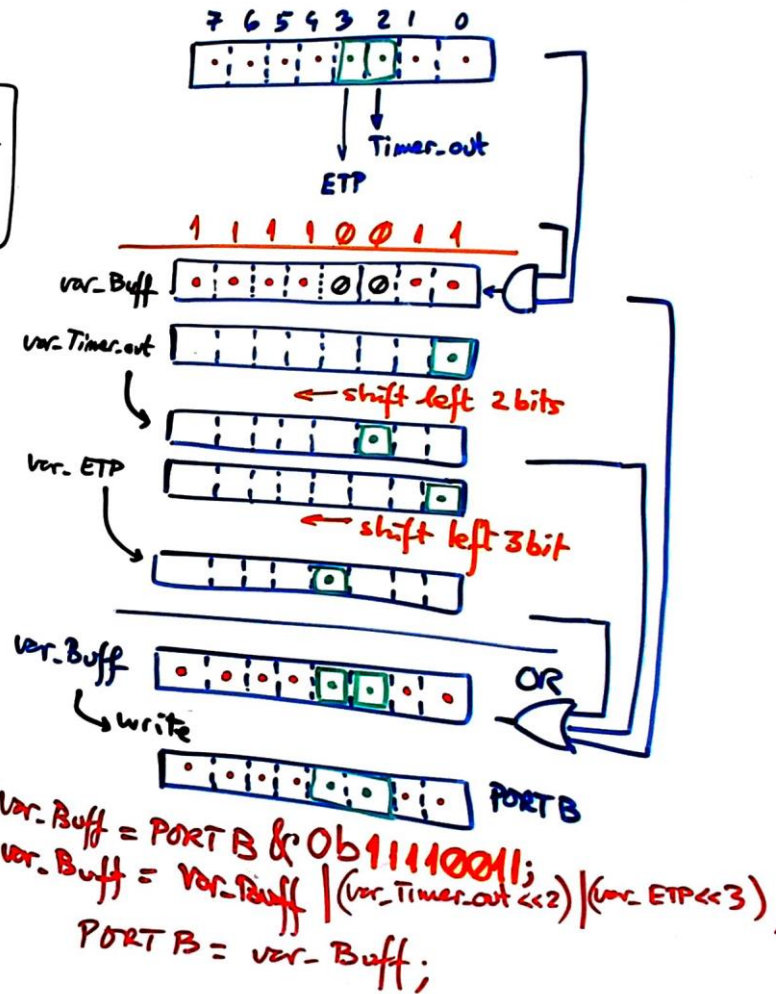 7 6 5 4 3 2 1 0
Timer_out
ETP
1 1 1 1 0 0 1 1
var_Buff 0 0
var_Timer_out
← shift left 2 bits
var_ETP
← shift left 3 bit
var_Buff
OR
write
PORT B
var_Buff = PORT B & 0b11110011;
var_Buff = var_Buff | (var_Timer_out <<2) | (var_ETP<<3);
PORT B = var_Buff;